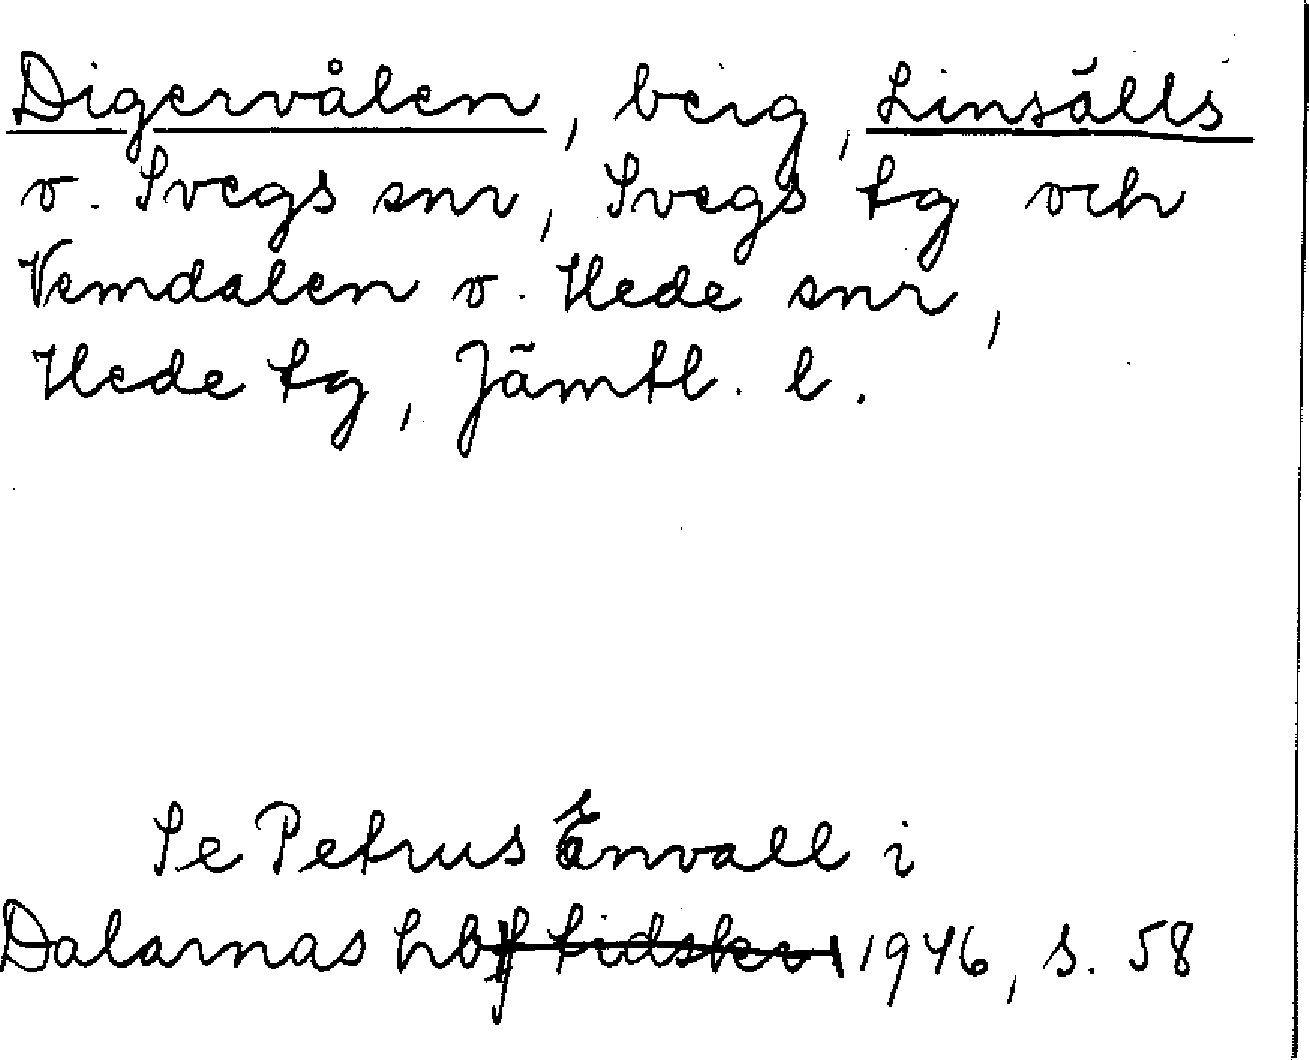 Digervålen, berg, Linsälls
o. Svegs snr, Svegs tg och
Vemdalen o. Hede snr,
Hede tg, Jämtl. l.
Se Petrus Envall i
Dalarnas hbf tidskr 1946, s. 58